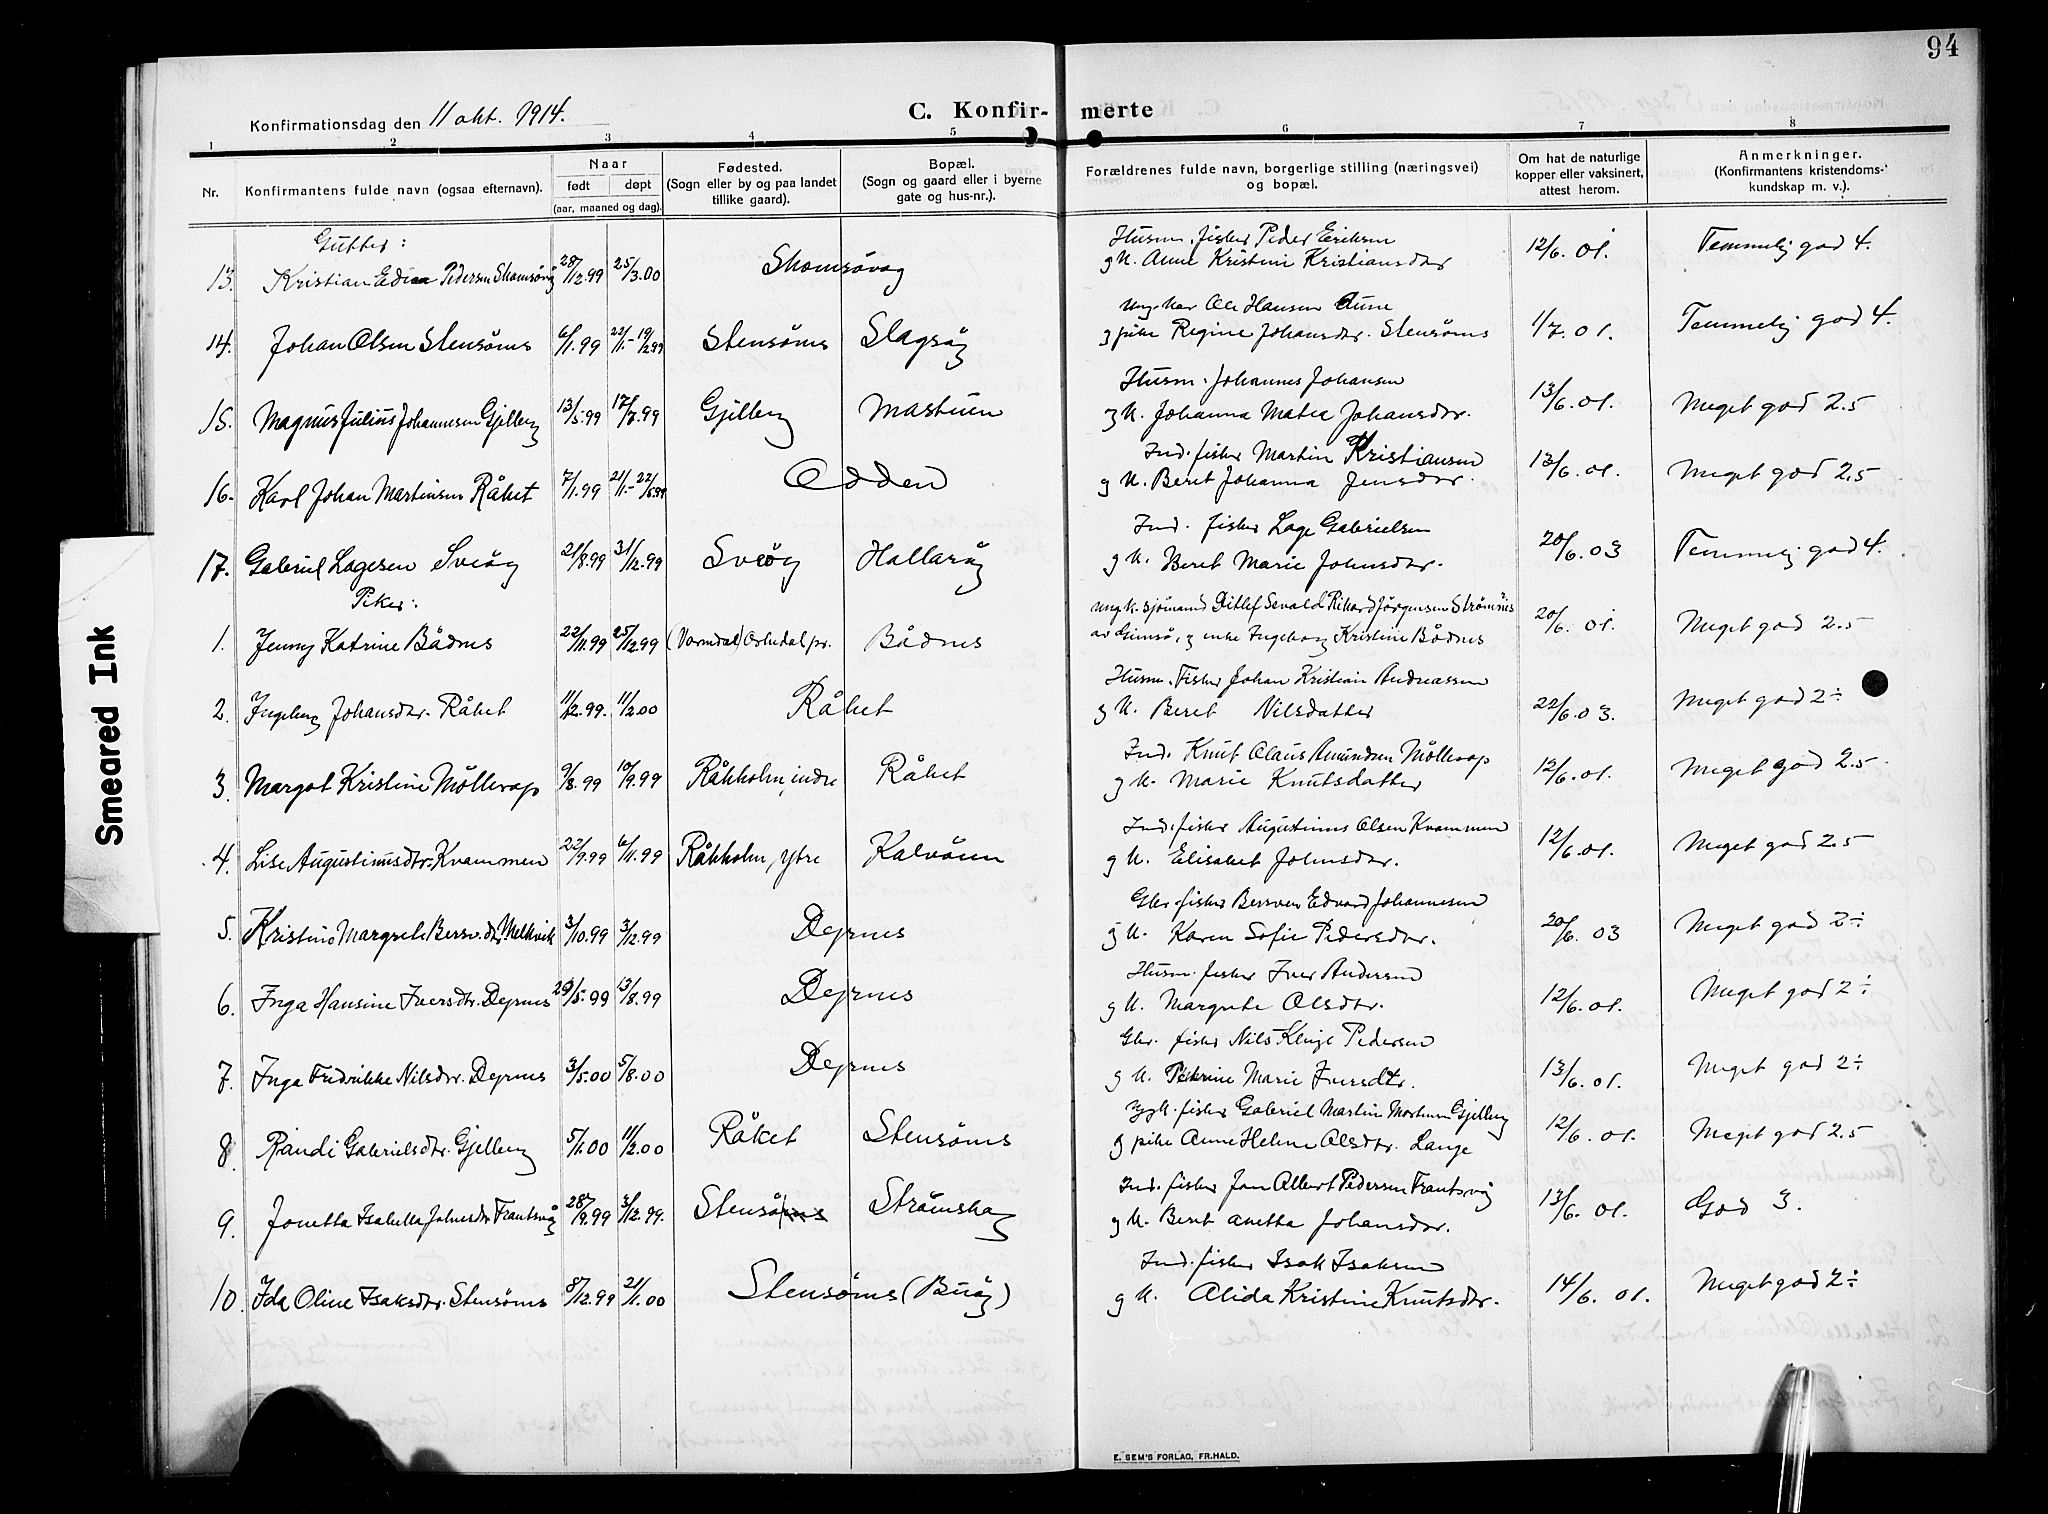 94
Konfirmationsdag den 11 okt. 1914.
C. Konfir- merte
1 2 3 4 5 6 7 8
Nr. Konfirmantens fulde navn (ogsaa efternavn). Naar født døpt (aar, maaned og dag). Fødested. (Sogn eller by og paa landet tillike gaard). Bopæl. (Sogn og gaard eller i byerne gate og hus-nr.). Forældrenes fulde navn, borgerlige stilling (næringsvei) og bopæl. Om hat de naturlige kopper eller vaksinert, attest herom. Anmerkninger. (Konfirmantens kristendoms- kundskap m. v.).
Gutter:
Husm. fisker Peder Eriksen
13. Kristian Edias Pedersen Skomsøvåg 28/12.99 25/3.00 Skomsøvåg g k. Anne Kristine Kristiansdtr 12/6.01. Temmelig god 4.
Ungkar Ole Hansen Aune
14. Johan Olsen Stensønes 6/1.99 22/1.-19/2.99 Stensønes Slagsøy g pike Regine Johansdtr. Stensønes 1/7.01. Temmelig god 4.
Husm. Johannes Johansen
15. Magnus Julius Johannesen Gjelberg 13/5.99 17/7.99 Gjelberg Mastuen g k. Johanna Matea Johansdtr. 13/6.01. Meget god 2.5
Ind. fisker Martin Kristiansen
16. Karl Johan Martinsen Råket 7/1.99 21/1.-22/5.99 Odden g k. Beret Johanna Jensdtr. 13/6.01. Meget god 2.5
Ind. fisker Lage Gabrielsen
17. Gabriel Lagesen Sveøy 21/8.99 31/12.99 Sveøy Hallarøy g k. Beret Marie Johnsdtr. 20/6.03 Temmelig god 4.
Piker:
Ungk. sjømand Ditlef Sevald Rikard Jørgensen Strømnes
1. Jenny Katrine Bådnes 22/11.99 25/12.99 (Vormdal) Orkedal pr. Bådnes av Gimsø, g enke Ingeborg Kristine Bådnes 20/6.01. Meget god 2.5
Husm. Fisker Johan Kristian Andreassen
2. Ingeborg Johansdtr. Råket 11/12.99. 11/2.00 Råket g k. Beret Nilsdatter 22/6.03. Meget god 2÷
Ind. Knut Olaus Amundsen Møllerop
3. Margot Kristine Møllerop 9/8.99 10/9.99 Råkholm, indre Råket g k. Marie Knutsdatter 12/6.01. Meget god 2.5
Ind. fisker Augustinus Olsen Kvammen
4. Lise Augustinusdtr. Kvammen 22/9.99 6/11.99 Råkholm, ytre Kalvøien g k. Elisabet Johnsdtr. 12/6.01. Meget god 2.5
Gbr. fisker Bersven Edvard Johannesen
5. Kristine Margrete Bersv.dtr. Melkvik 3/10.99 3/12.99 Dyrnes g k. Karen Sofie Pedersdtr. 20/6.03 Meget god 2÷
Husm. fisker Iver Andersen
6. Inga Hansine Iversdtr. Dyrnes 29/5.99 13/8.99 Dyrnes g k. Margrete Olsdtr. 12/6.01. Meget god 2÷
Gbr. fisker Nils Kluge Pedersen
7. Inga Fredrikke Nilsdtr. Dyrnes 3/5.00 5/8.00 Dyrnes g k. Petrine Marie Iversdtr. 13/6.01. Meget god 2÷
Ygk. fisker Gabriel Martin Mortensen Gjelberg
8. Randi Gabrielsdtr. Gjelberg 5/1.00 11/2.00 Råket Stensønes g pike Anne Helene Olsdtr. Lange 12/6.01. Meget god 2.5
Ind. fisker Jon Albert Pedersen Frantsvåg
9. Jonetta Isabella Johnsdtr. Frantsvåg 28/9.99 3/12.99. Stensø Strømskag g k. Beret Anetta Johansdtr. 13/6.01. God 3.
Ind. fisker Isak Isaksen
10. Ida Oline Isaksdtr. Stensønes 8/12.99 21/1.00 Stensønes (Buøy) g k. Alida Kristine Knutsdtr. 14/6.01. Meget god 2÷
E. SEM'S FORLAG, FR.HALD.
Smeared Ink